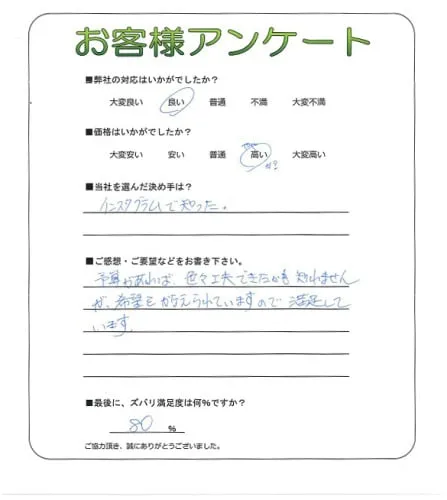 お客様アンケート
■弊社の対応はいかがでしたか?
大変良い 良い 普通 不満 大変不満
■価格はいかがでしたか?
大変安い 安い 普通 高い 大変高い
■当社を選んだ決め手は?
インスタグラムで知った。
■ご感想・ご要望などをお書き下さい。
予算があれば、色々工夫できたかも知れません
が、希望も叶えられていますので満足して
います。
■最後に、ズバリ満足度は何%ですか?
80 %
ご協力頂き、誠にありがとうございました。